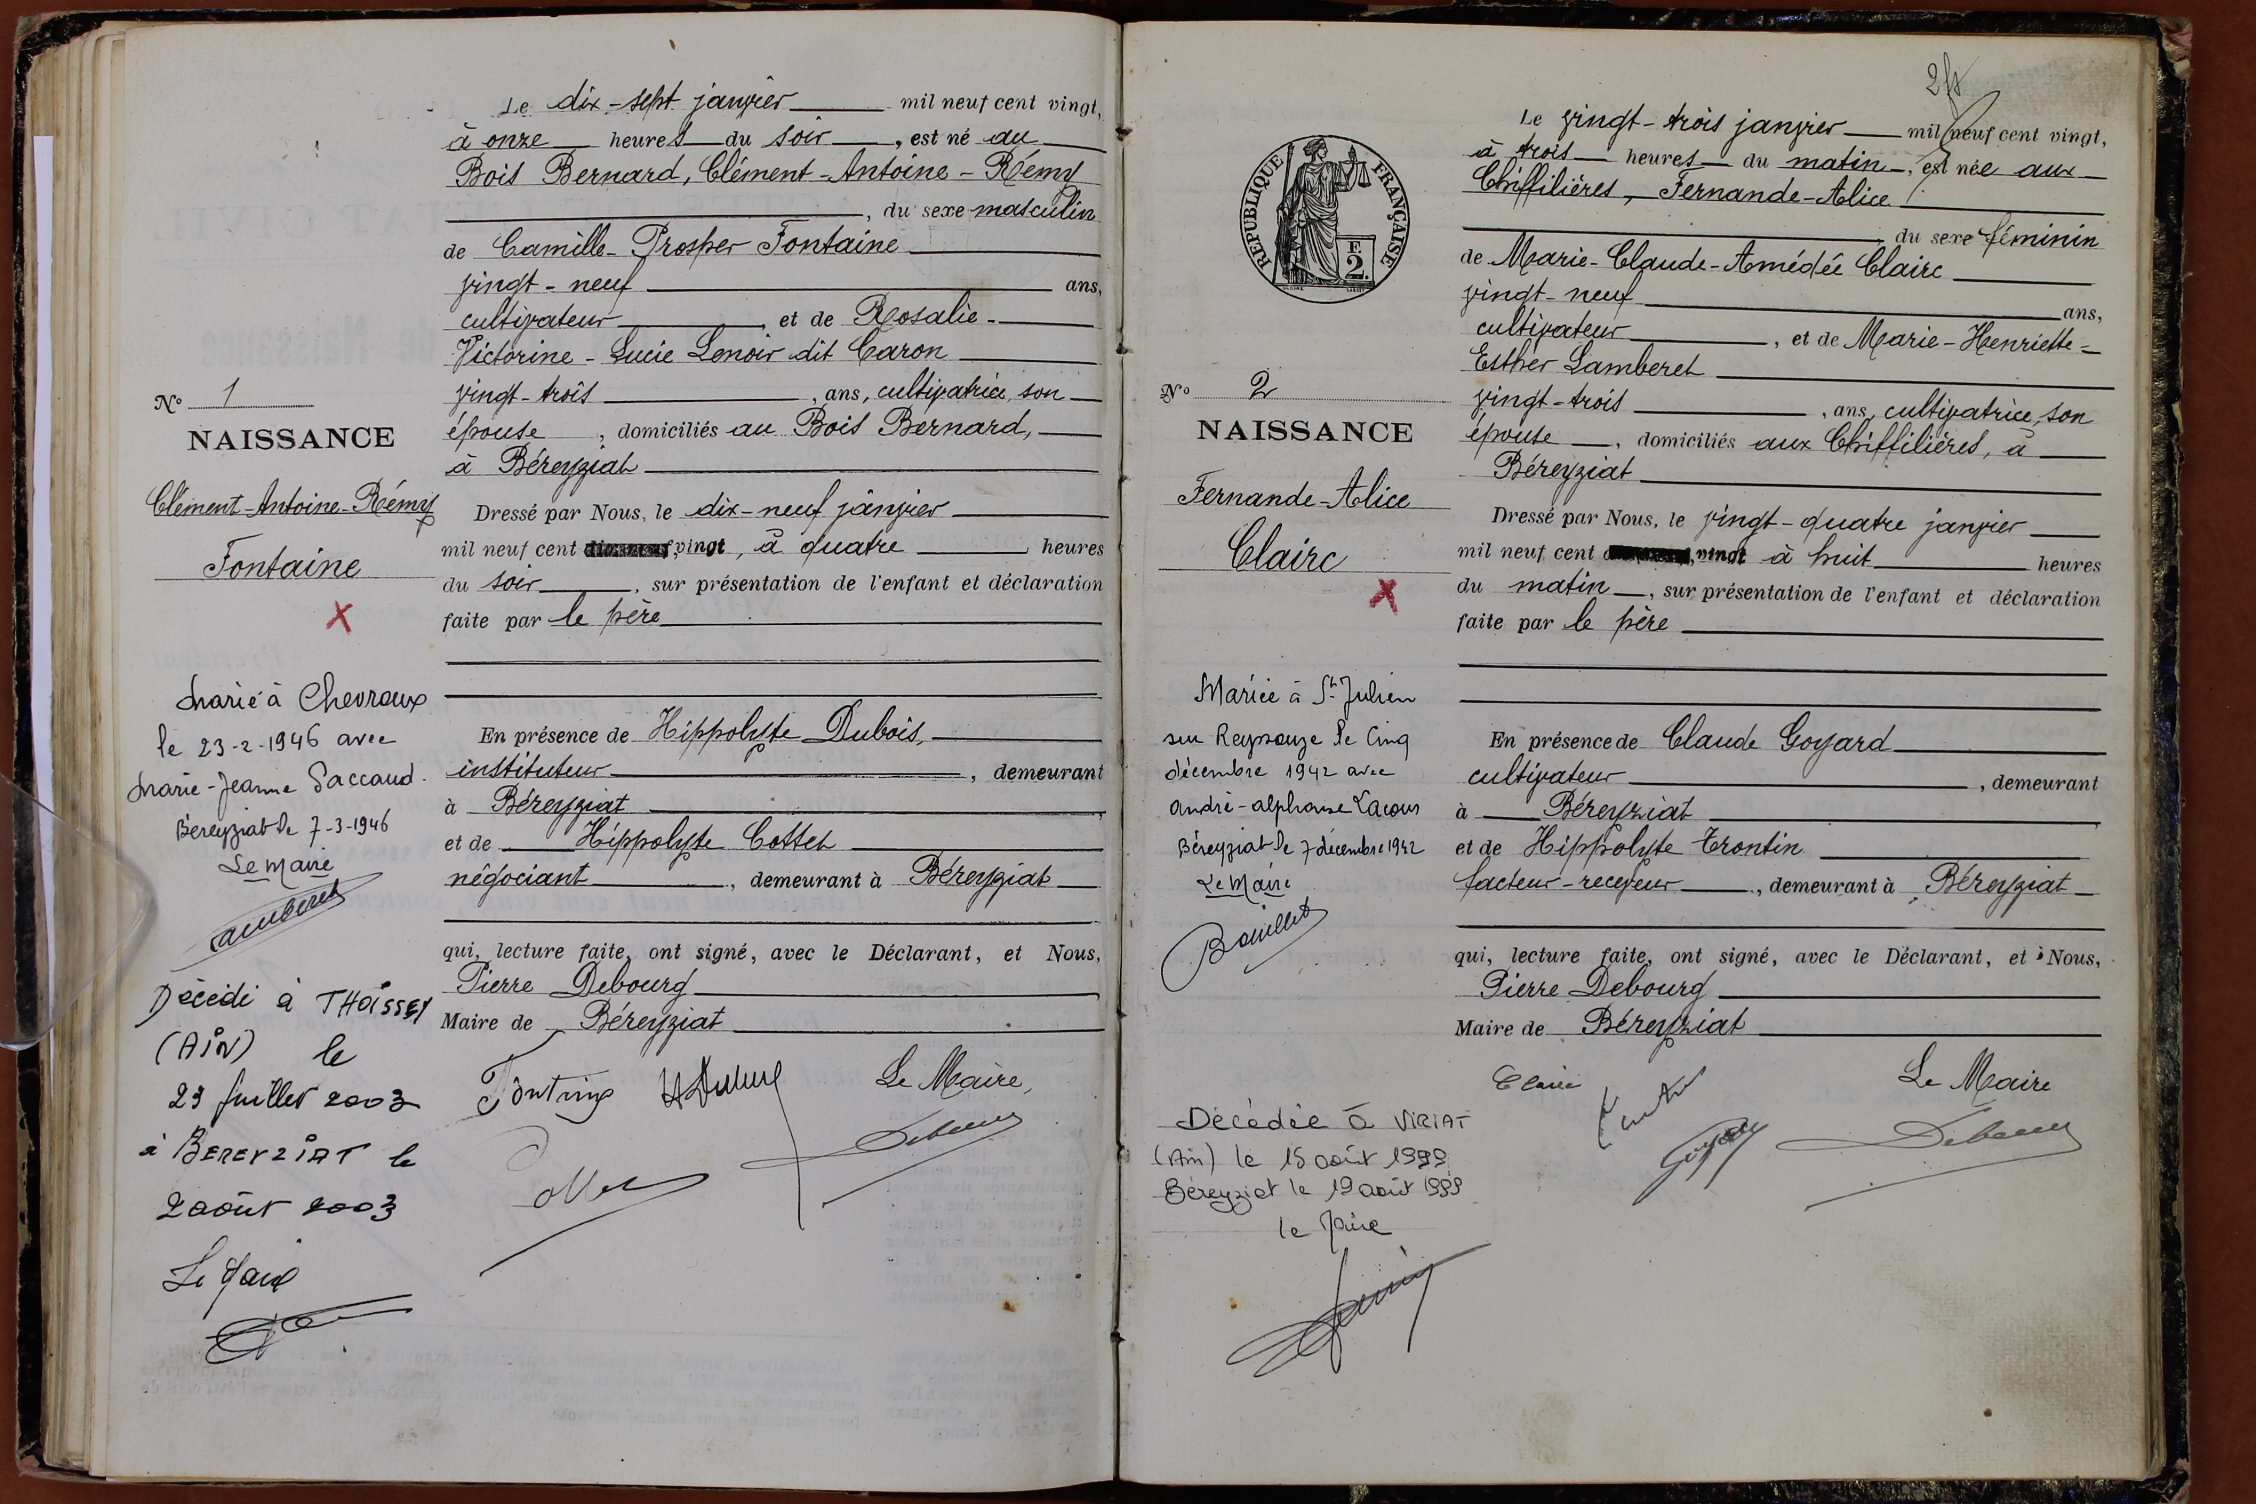 Le dix-sept janvier mil neuf cent vingt,
à onze heures du soir, est né au
Bois Bernard, Clément-Antoine-Rémy
, du sexe masculin
de Camille-Prosper Fontaine
vingt-neuf ans,
cultivateur, et de Rosalie-
Victorine-Lucie Lenoir dit Caron
vingt-trois, ans, cultivatrice, son
épouse, domiciliés au Bois Bernard,
à Béreyziat
Dressé par Nous, le dix-neuf janvier
mil neuf cent vingt, à quatre heures
du soir, sur présentation de l'enfant et déclaration
faite par le père
En présence de Hippolyte Dubois,
instituteur, demeurant
à Béreyziat
et de Hippolyte Cottet
négociant, demeurant à Béreyziat
qui, lecture faite, ont signé, avec le Déclarant, et Nous,
Pierre Debourg
Maire de Béreyziat
Le Maire,
Nº 1
NAISSANCE
Clément-Antoine-Rémy
Fontaine
X
Marié à Chevroux
le 23-2-1946 avec
Marie-Jeanne Paccaud.
Béreyziat le 7-3-1946
Le Maire
Décédé à THOISSEY
(AIN) le
29 juillet 2003
à BEREYZIAT le
2 août 2003
Le Maire
2
Le vingt-trois janvier mil neuf cent vingt,
à trois heures du matin, est née aux
Chiffilières, Fernande-Alice
du sexe féminin
de Marie-Claude-Amédée Clairc
vingt-neuf ans,
cultivateur, et de Marie-Henriette-
Esther Lamberet
vingt-trois, ans, cultivatrice, son
épouse, domiciliés aux Chiffilières, à
Béreyziat
Dressé par Nous, le vingt-quatre janvier
mil neuf cent vingt à huit heures
du matin, sur présentation de l'enfant et déclaration
faite par le père
En présence de Claude Goyard
cultivateur, demeurant
à Béreyziat
et de Hippolyte Trontin
facteur-receveur, demeurant à Béreyziat
qui, lecture faite, ont signé, avec le Déclarant, et Nous,
Pierre Debourg
Maire de Béreyziat
Le Maire
REPUBLIQUE FRANÇAISE
F.
2.
Nº 2
NAISSANCE
Fernande-Alice
Clairc
X
Mariée à St Julien
sur Reyssouze le Cinq
décembre 1942 avec
André-alphonse Lacour
Béreyziat le 7 décembre 1942
Le Maire
Bouillet
Décédée à VIRIAT
(Ain) le 15 août 1999
Béreyziat le 19 août 1999
le Maire